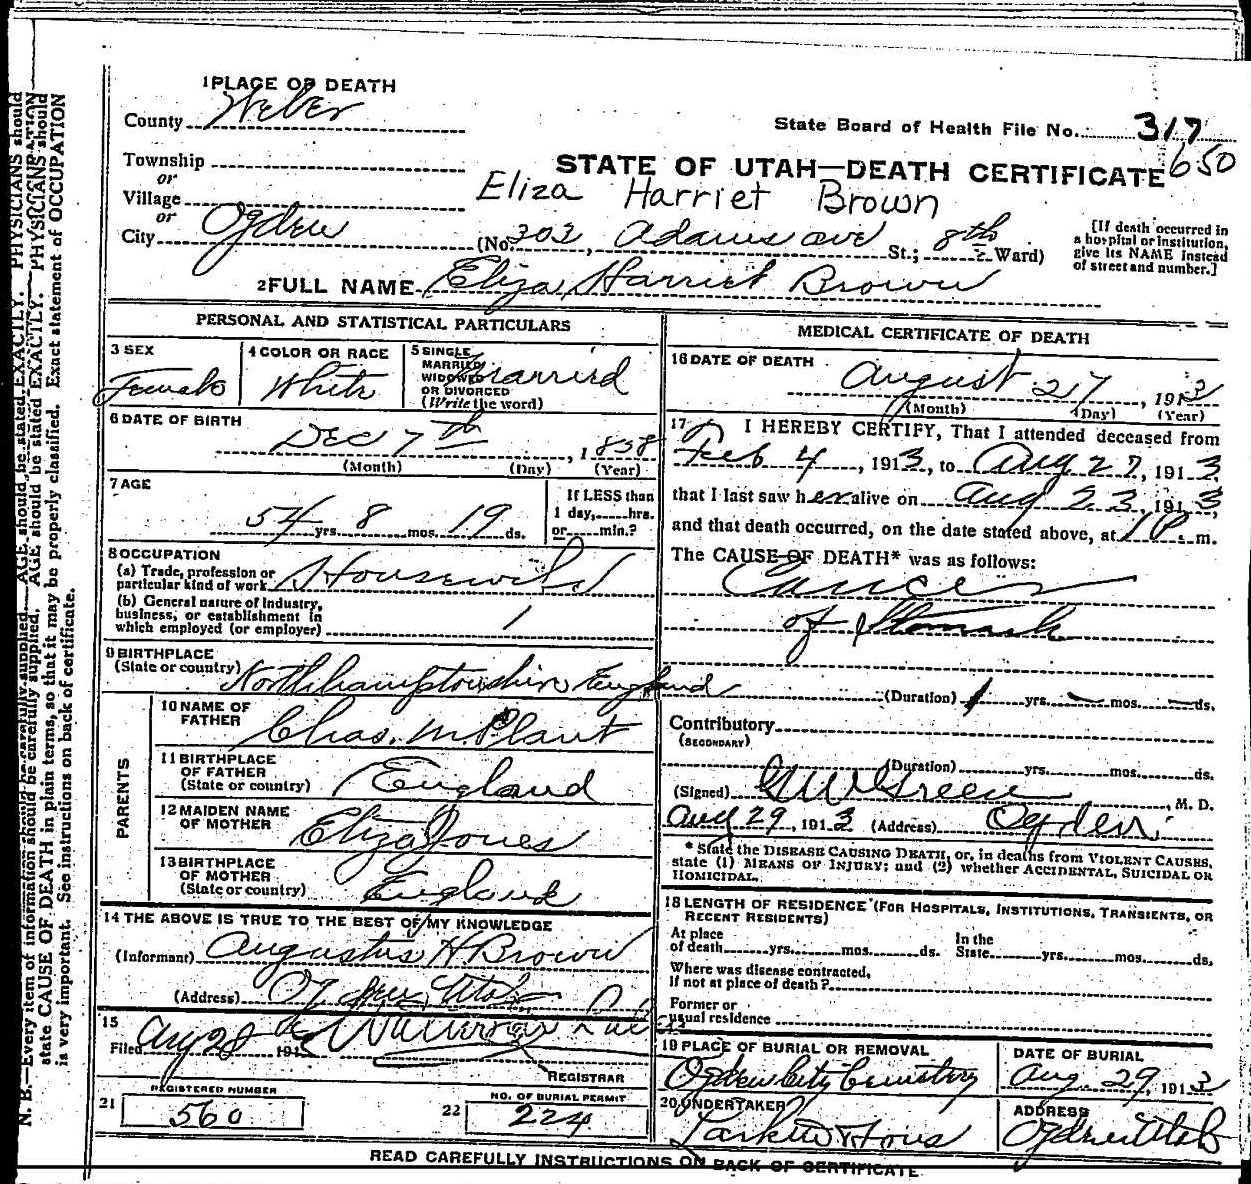 1 PLACE OF DEATH
County Weber
State Board of Health File No. 317
650
Township
or
Village
or
City Ogden
STATE OF UTAH—DEATH CERTIFICATE
Eliza Harriet Brown
(No. 303, Adams ave St.; 8th Ward)
[If death occurred in
a hospital or institution,
give its NAME instead
of street and number.]
2 FULL NAME Eliza Harriet Brown
PERSONAL AND STATISTICAL PARTICULARS
3 SEX
Female
4 COLOR OR RACE
White
5 SINGLE
MARRIED
WIDOWED
OR DIVORCED
(Write the word)
Married
6 DATE OF BIRTH
Dec 7th, 1858
(Month) (Day) (Year)
7 AGE
54 yrs. 8 mos. 19 ds.
If LESS than
1 day, hrs.
or min.?
8 OCCUPATION
(a) Trade, profession or
particular kind of work Housewife
(b) General nature of Industry,
business, or establishment in
which employed (or employer)
9 BIRTHPLACE
(State or country) Northhamptonshire England
PARENTS
10 NAME OF
FATHER
Chas. M. Plant
11 BIRTHPLACE
OF FATHER
(State or country) England
12 MAIDEN NAME
OF MOTHER
Eliza Jones
13 BIRTHPLACE
OF MOTHER
(State or country) England
14 THE ABOVE IS TRUE TO THE BEST OF MY KNOWLEDGE
(Informant) Augustus H Brown
(Address) Ogden Utah
15
Filed Aug 28 191
REGISTRAR
REGISTERED NUMBER
21 560
NO. OF BURIAL PERMIT
22 224
MEDICAL CERTIFICATE OF DEATH
16 DATE OF DEATH
August 27, 1913
(Month) (Day) (Year)
17 I HEREBY CERTIFY, That I attended deceased from
Feb 4, 1913, to Aug 27, 1913
that I last saw her alive on Aug 23, 1913,
and that death occurred, on the date stated above, at 1 P. m.
The CAUSE OF DEATH* was as follows:
Cancer
of Stomach
(Duration) 1 yrs. — mos. — ds.
Contributory
(SECONDARY)
(Duration) yrs. mos. ds.
(Signed) Green, M. D.
Aug 29, 1913 (Address) Ogden
* State the DISEASE CAUSING DEATH, or, in deaths from VIOLENT CAUSES,
state (1) MEANS OF INJURY; and (2) whether ACCIDENTAL, SUICIDAL OR
HOMICIDAL.
18 LENGTH OF RESIDENCE (FOR HOSPITALS, INSTITUTIONS, TRANSIENTS, OR
RECENT RESIDENTS)
At place
of death yrs. mos. ds.
In the
State yrs. mos. ds.
Where was disease contracted,
If not at place of death?
Former or
usual residence
19 PLACE OF BURIAL OR REMOVAL
Ogden City Cemetery
DATE OF BURIAL
Aug. 29, 1913
20 UNDERTAKER
Larkin & Sons
ADDRESS
Ogden Utah
READ CAREFULLY INSTRUCTIONS ON BACK OF CERTIFICATE
N. B.—Every item of information should be carefully supplied. AGE should be stated EXACTLY. PHYSICIANS should
state CAUSE OF DEATH in plain terms, so that it may be properly classified. Exact statement of OCCUPATION
is very important. See instructions on back of certificate.